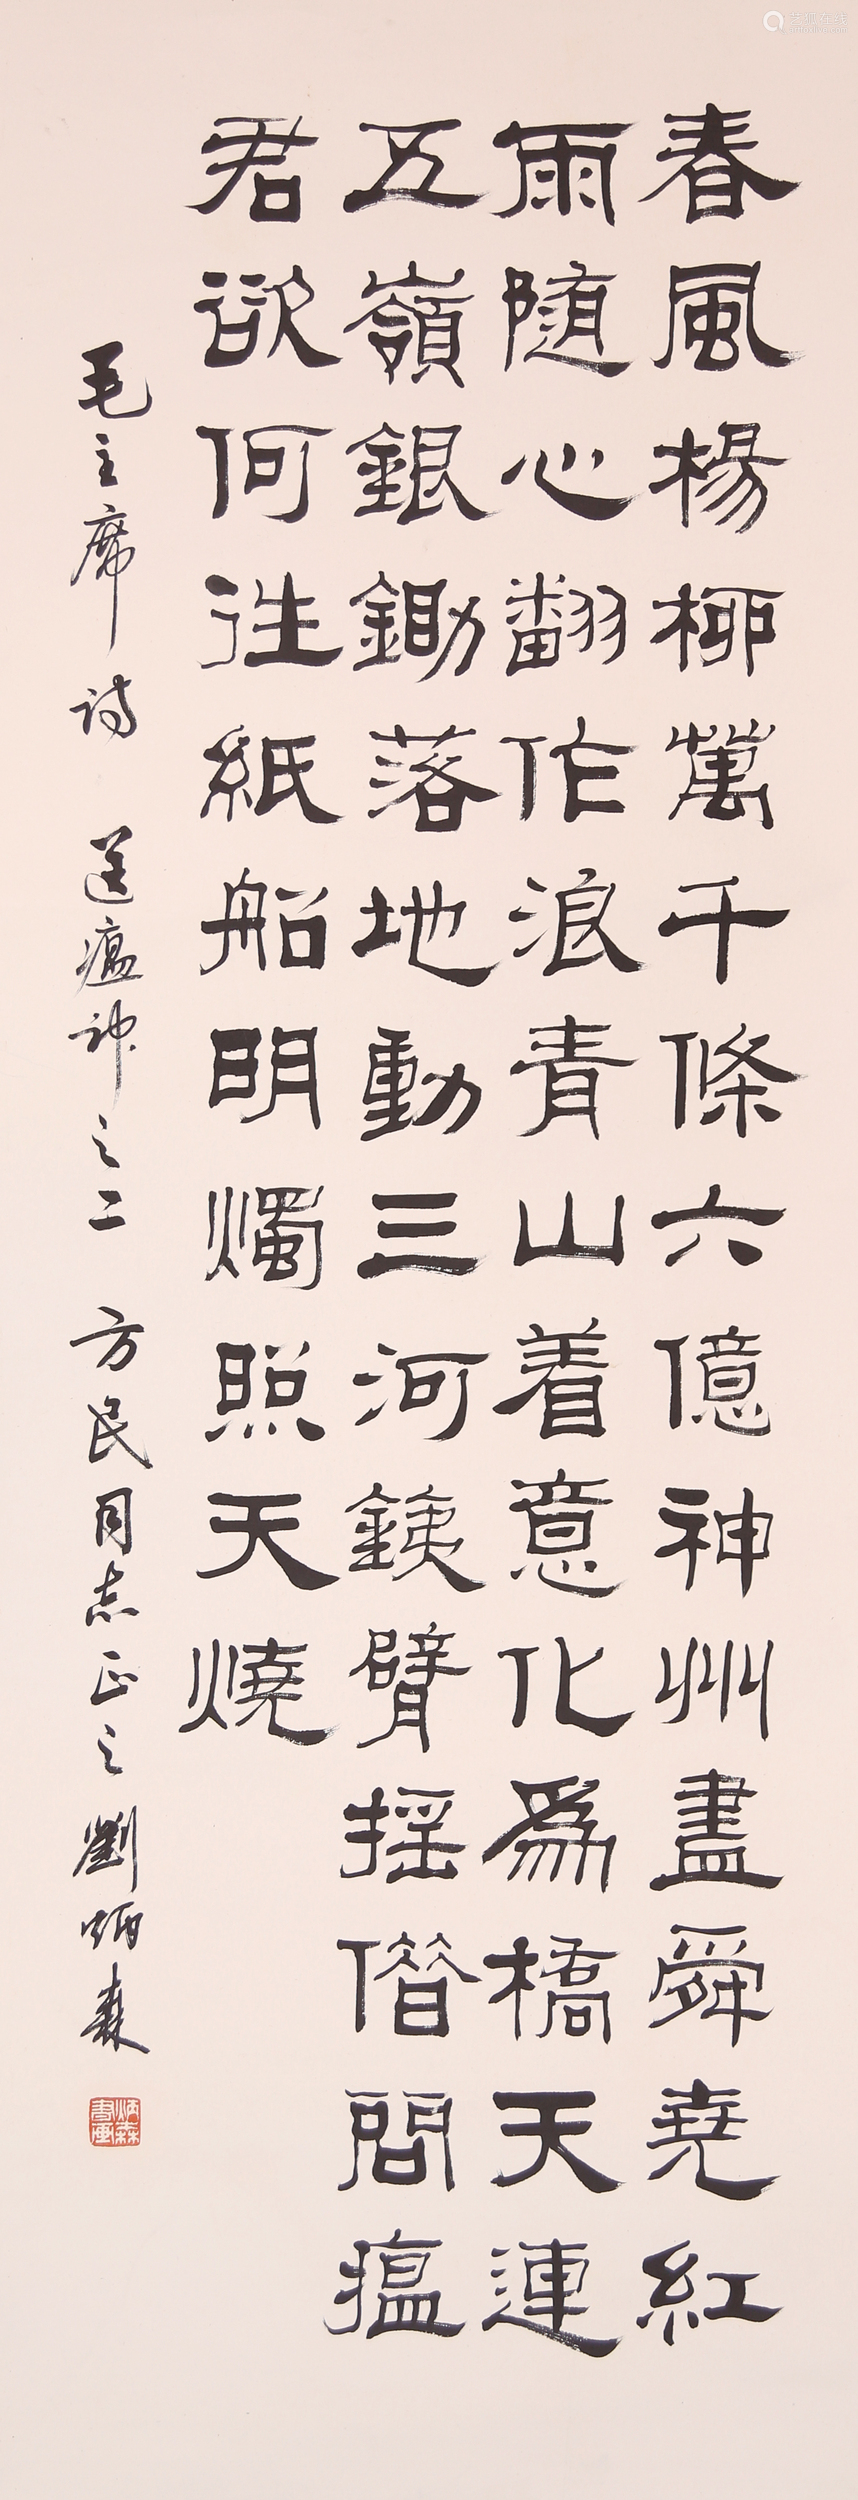 春風楊柳萬千條六億神州盡舜堯紅
雨随心翻作浪青山着意化為橋天連
五嶺銀鋤落地動三河銕臂摇借問瘟
君欲何往紙船明燭照天燒
毛主席诗 送瘟神之二 方民同志正之 劉炳森
炳森書画
艺狐在线